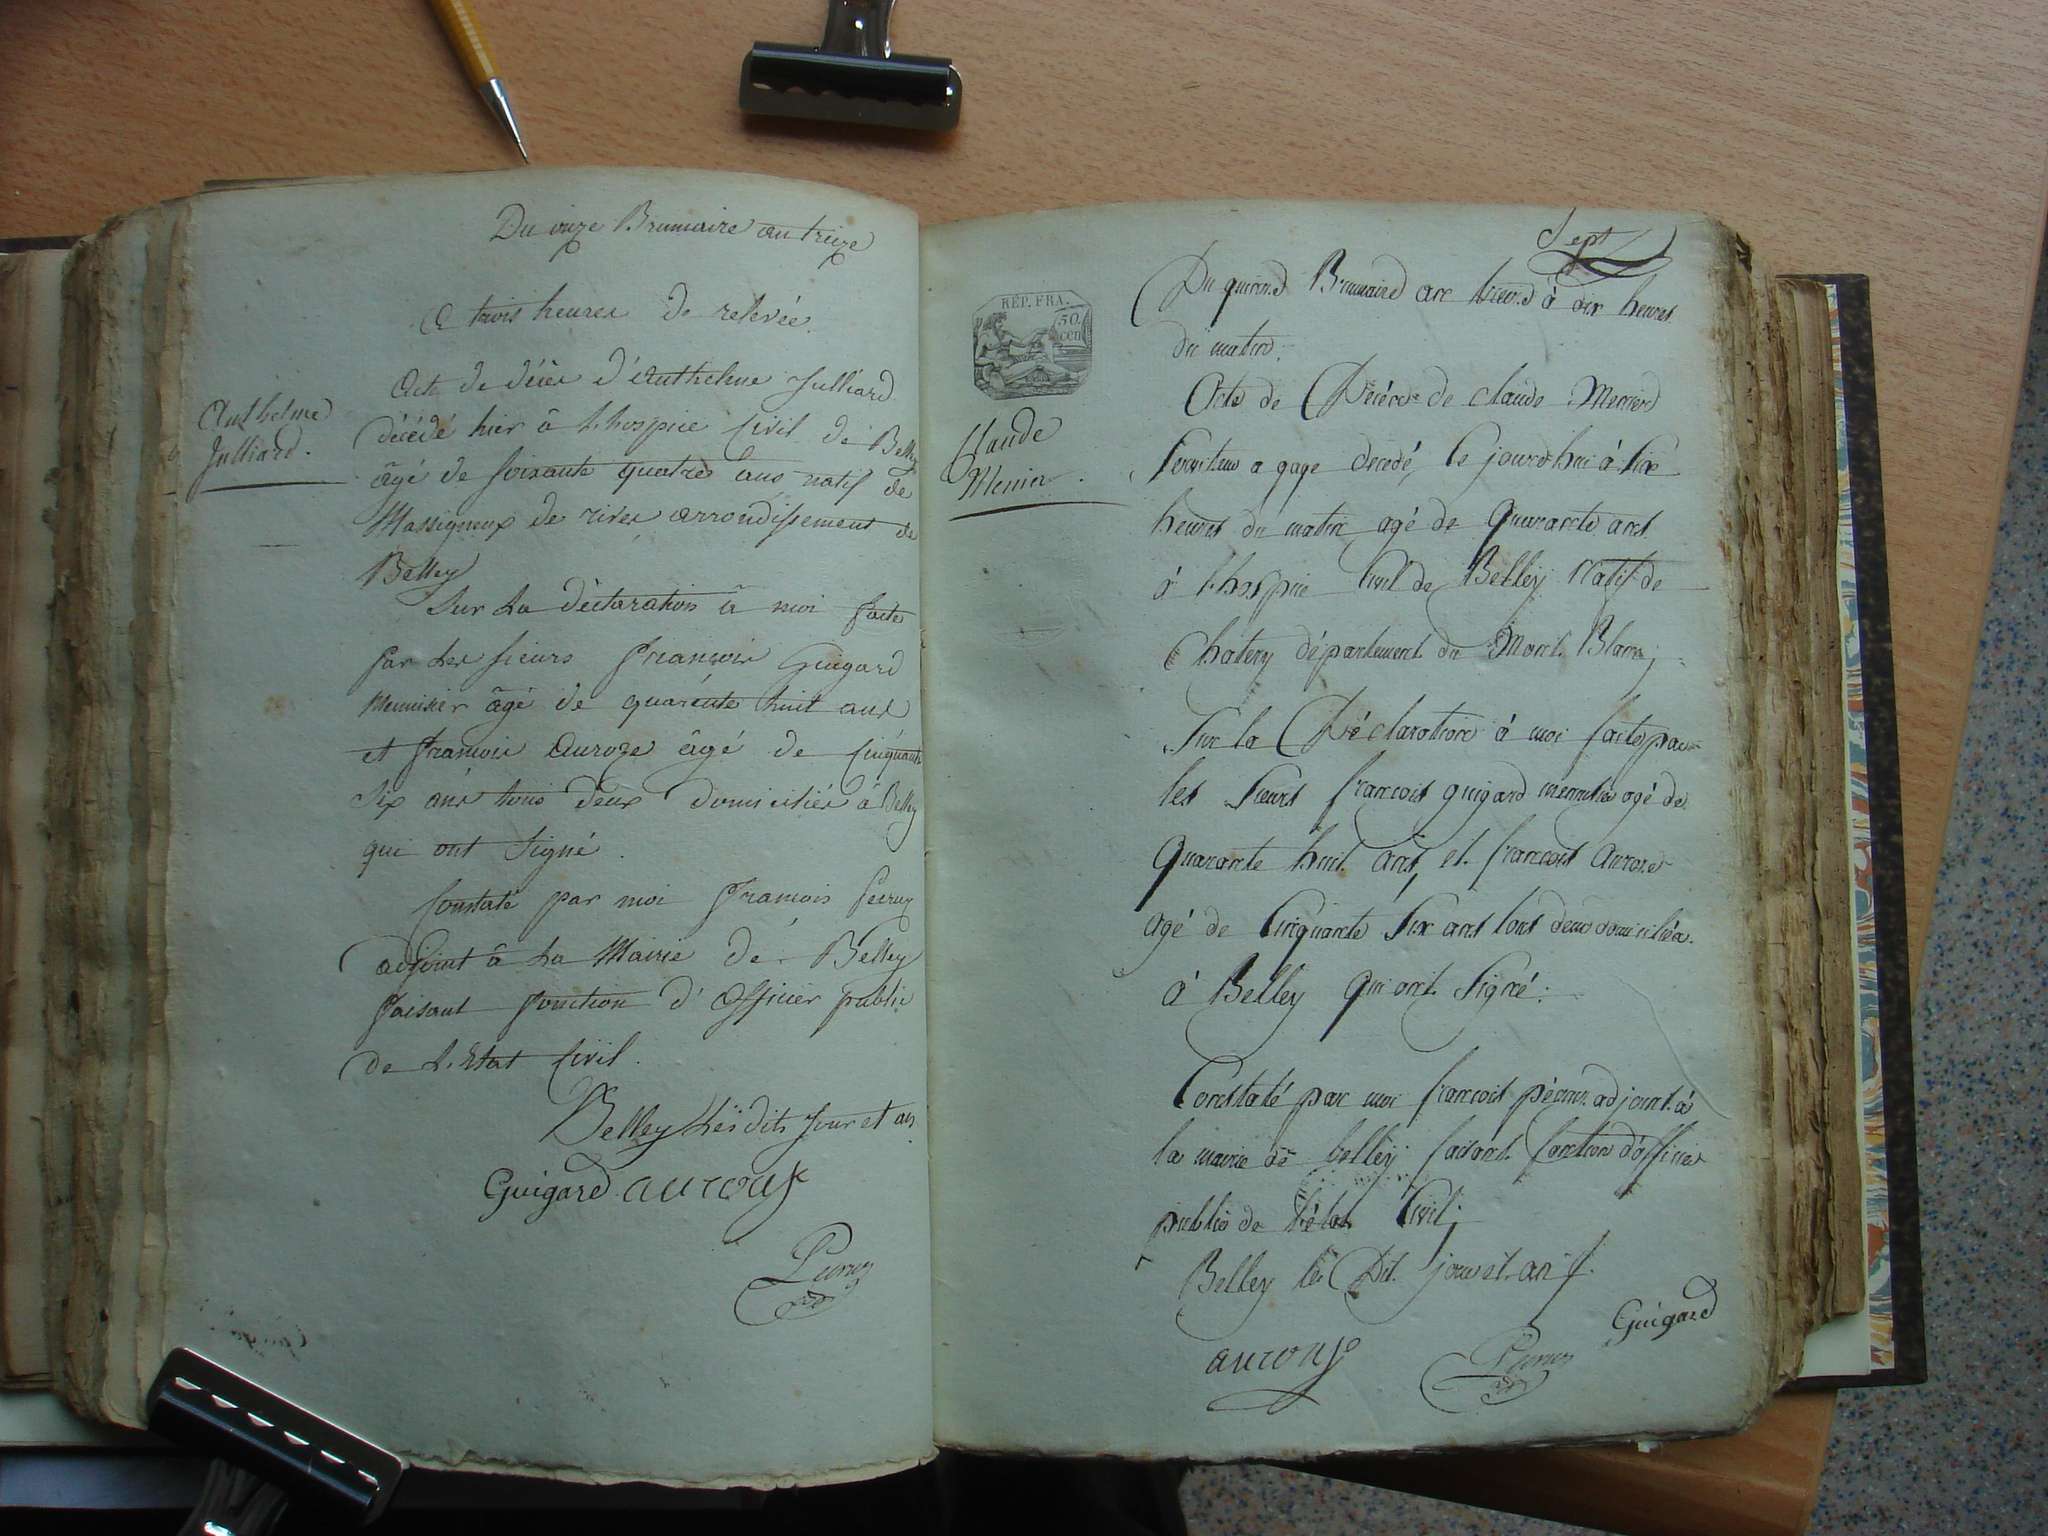 Du onze Brumaire an treize
a trois heures de relevée.
Anthelme
Julliard.
Acte de décès d'Anthelme Julliard
décédé hier â L'hospice Civil de Belley
âgé de soixante quatre ans natif de
Massigneux de rives arrondissement de
Belley
Sur La déclaration â moi faite
par Les sieurs François Guigard
Menuisier âgé de quarente huit ans
et François Auroze âgé de Cinquante
Six ans tous deux domiciliés â Belley
qui ont Signé.
Constaté par moi François
adjoint â La Mairie de Belley
faisant fonction d'Officier public
de L'Etat Civil.
Belley Lesdits Jour et an
Guigard
Sept
RÉP. FRA.
50
cen
Claude
Menier.
Du quinze Brumaire an treize à dix heures
du matin.
Acte de Décéde de Claude Menier
serviteur a gage decedé, le jourdhui à six
heures du matin agé de Quarante ans
à L'hospice Civil de Belley Natif de
département du Mont Blanc;
Sur la Déclaration à moi faite par
les Sieurs françois guigard menuisier agé de
Quarante huit ans, et françois Auroze
agé de Cinquante Six ans tous deux domiciliés
à Belley Qui ont Signé:
Constaté par moi françois adjoint à
la mairie de belley faisant fonction d'officier
public de l'état Civil;
Belley les Dit jour et an
Guigard